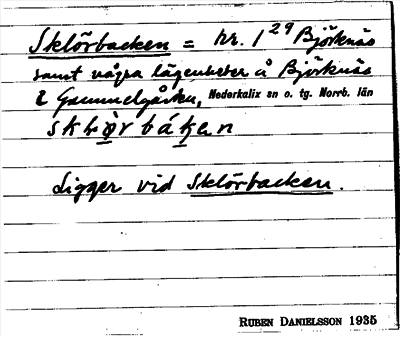 Sklörbacken = hr. 1²⁹ Björknäs
samt några lägenheter å Björknäs
& Gammelgården, Nederkalix sn o. tg. Norrb. län
Ligger vid Sklörbacken.
RUBEN DANIELSSON 1935